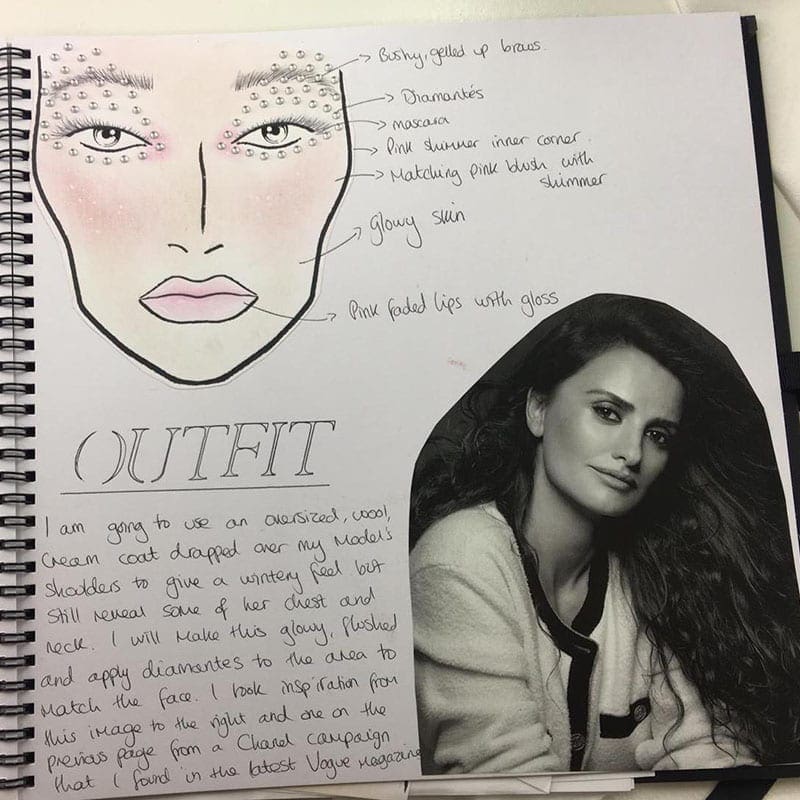 Bushy, gelled up brows.
Diamantés
mascara
Pink shimmer inner corner.
Matching pink blush with
shimmer
glowy skin
Pink faded lips with gloss
OUTFIT
I am going to use an oversized, wool,
cream coat drapped over my model's
shoulders to give a wintery feel but
still reveal some of her chest and
neck. I will make this glowy, flushed
and apply diamantes to the area to
match the face. I took inspiration from
this image to the right and one on the
previous page from a Chanel campaign
that I found in the latest Vogue Magazine